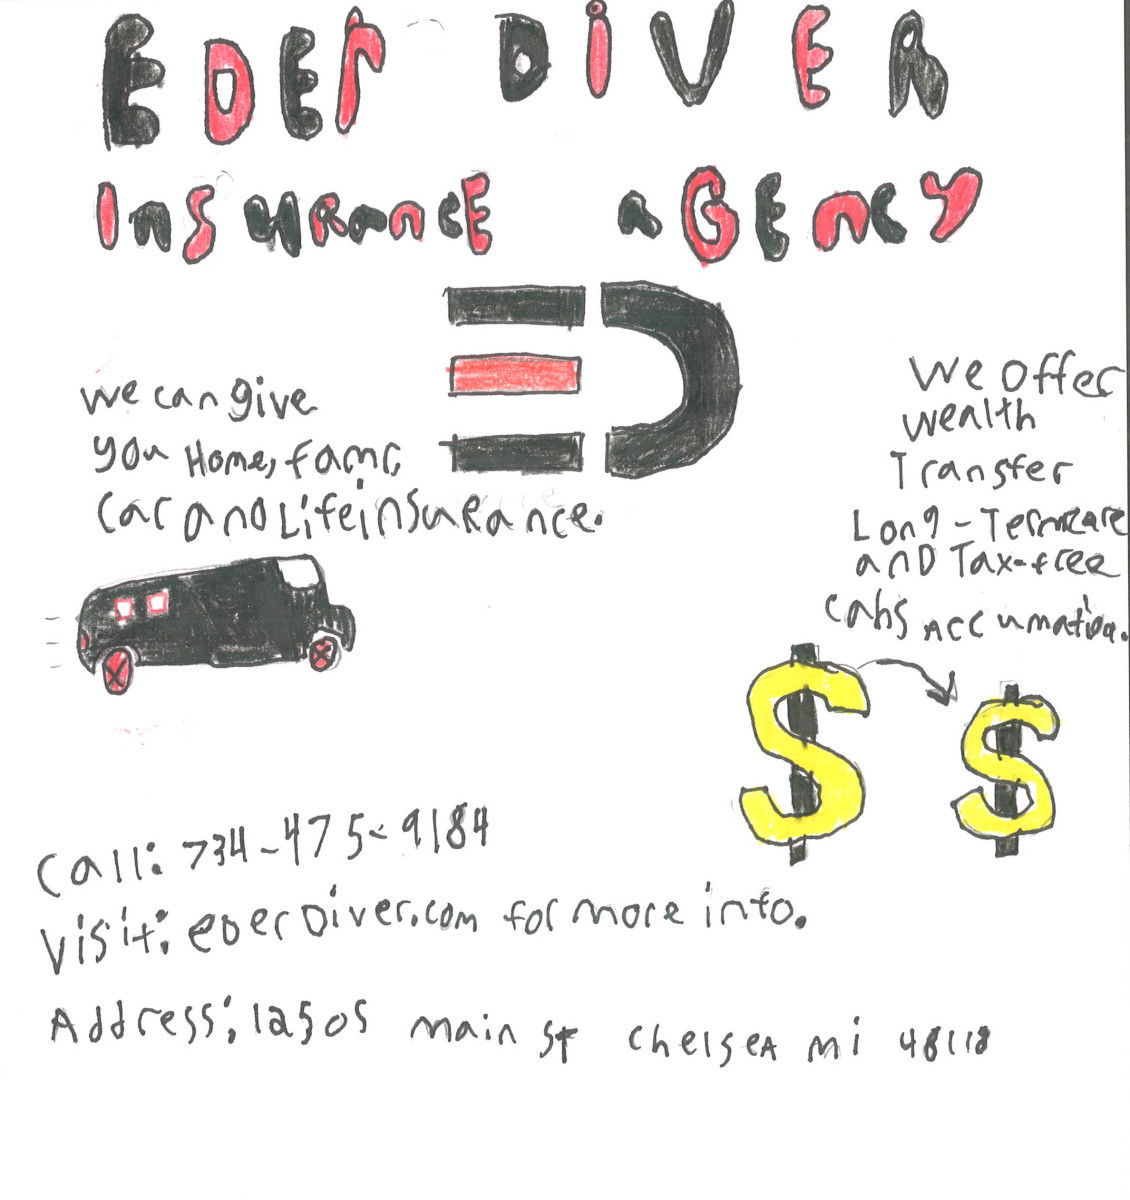 EDEr DiVER
InSURancE aGEncY
ED
we can give
you Home, farm,
car anD Life insuRance.
We offer
wealth
Transfer
Long-Term care
anD Tax-free
cahs Accumation.
$ $
Call: 734-475-9184
Visit: eDerDiver.com for more info.
Address: 1250S main St chelseA mi 48118